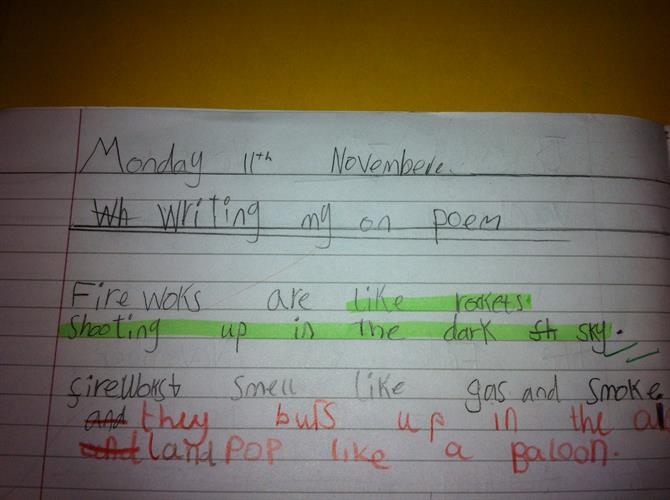 Monday 11th Novembere.
Wh writing my on poem
Fire woks are like rockets
Shooting up in the dark sh sky.
fireworst smell like gas and smoke
and they buls up in the
and land POP like a baloon.